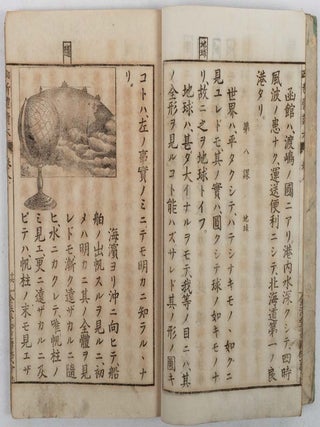 地球
函館ハ渡嶋ノ國ニアリ港内水深クシテ、四時
風波ノ患ナク、運送便利ニシテ、北海道第一ノ良
港タリ。
第八課 地球
世界ハ平タクシテ、ハテシナキモノヽ如クニ
見ユレドモ、其ノ實ハ圓クシテ球ノ如キモノナ
リ、故ニ之ヲ地球トイフ。
地球ハ、甚ダ大イナルヲモテ、我等ノ目ニハ、其
ノ全形ヲ見ルコト能ハズサレド其ノ形ノ圓キ
コトハ左ノ事實ノミニテモ明カニ知ラルヽナ
リ。
海濱ヨリ沖ニ向ヒテ、船
舶ノ出帆スルヲ見ルニ、初
メハ明カニ其ノ全體ヲ見
レドモ、漸ク遠ザカルニ隨
ヒ、水ニカクレテ、唯帆柱ノ
ミ見エ、更ニ遠ザカルニ及
ビテハ、帆柱ノ末モ見エザ